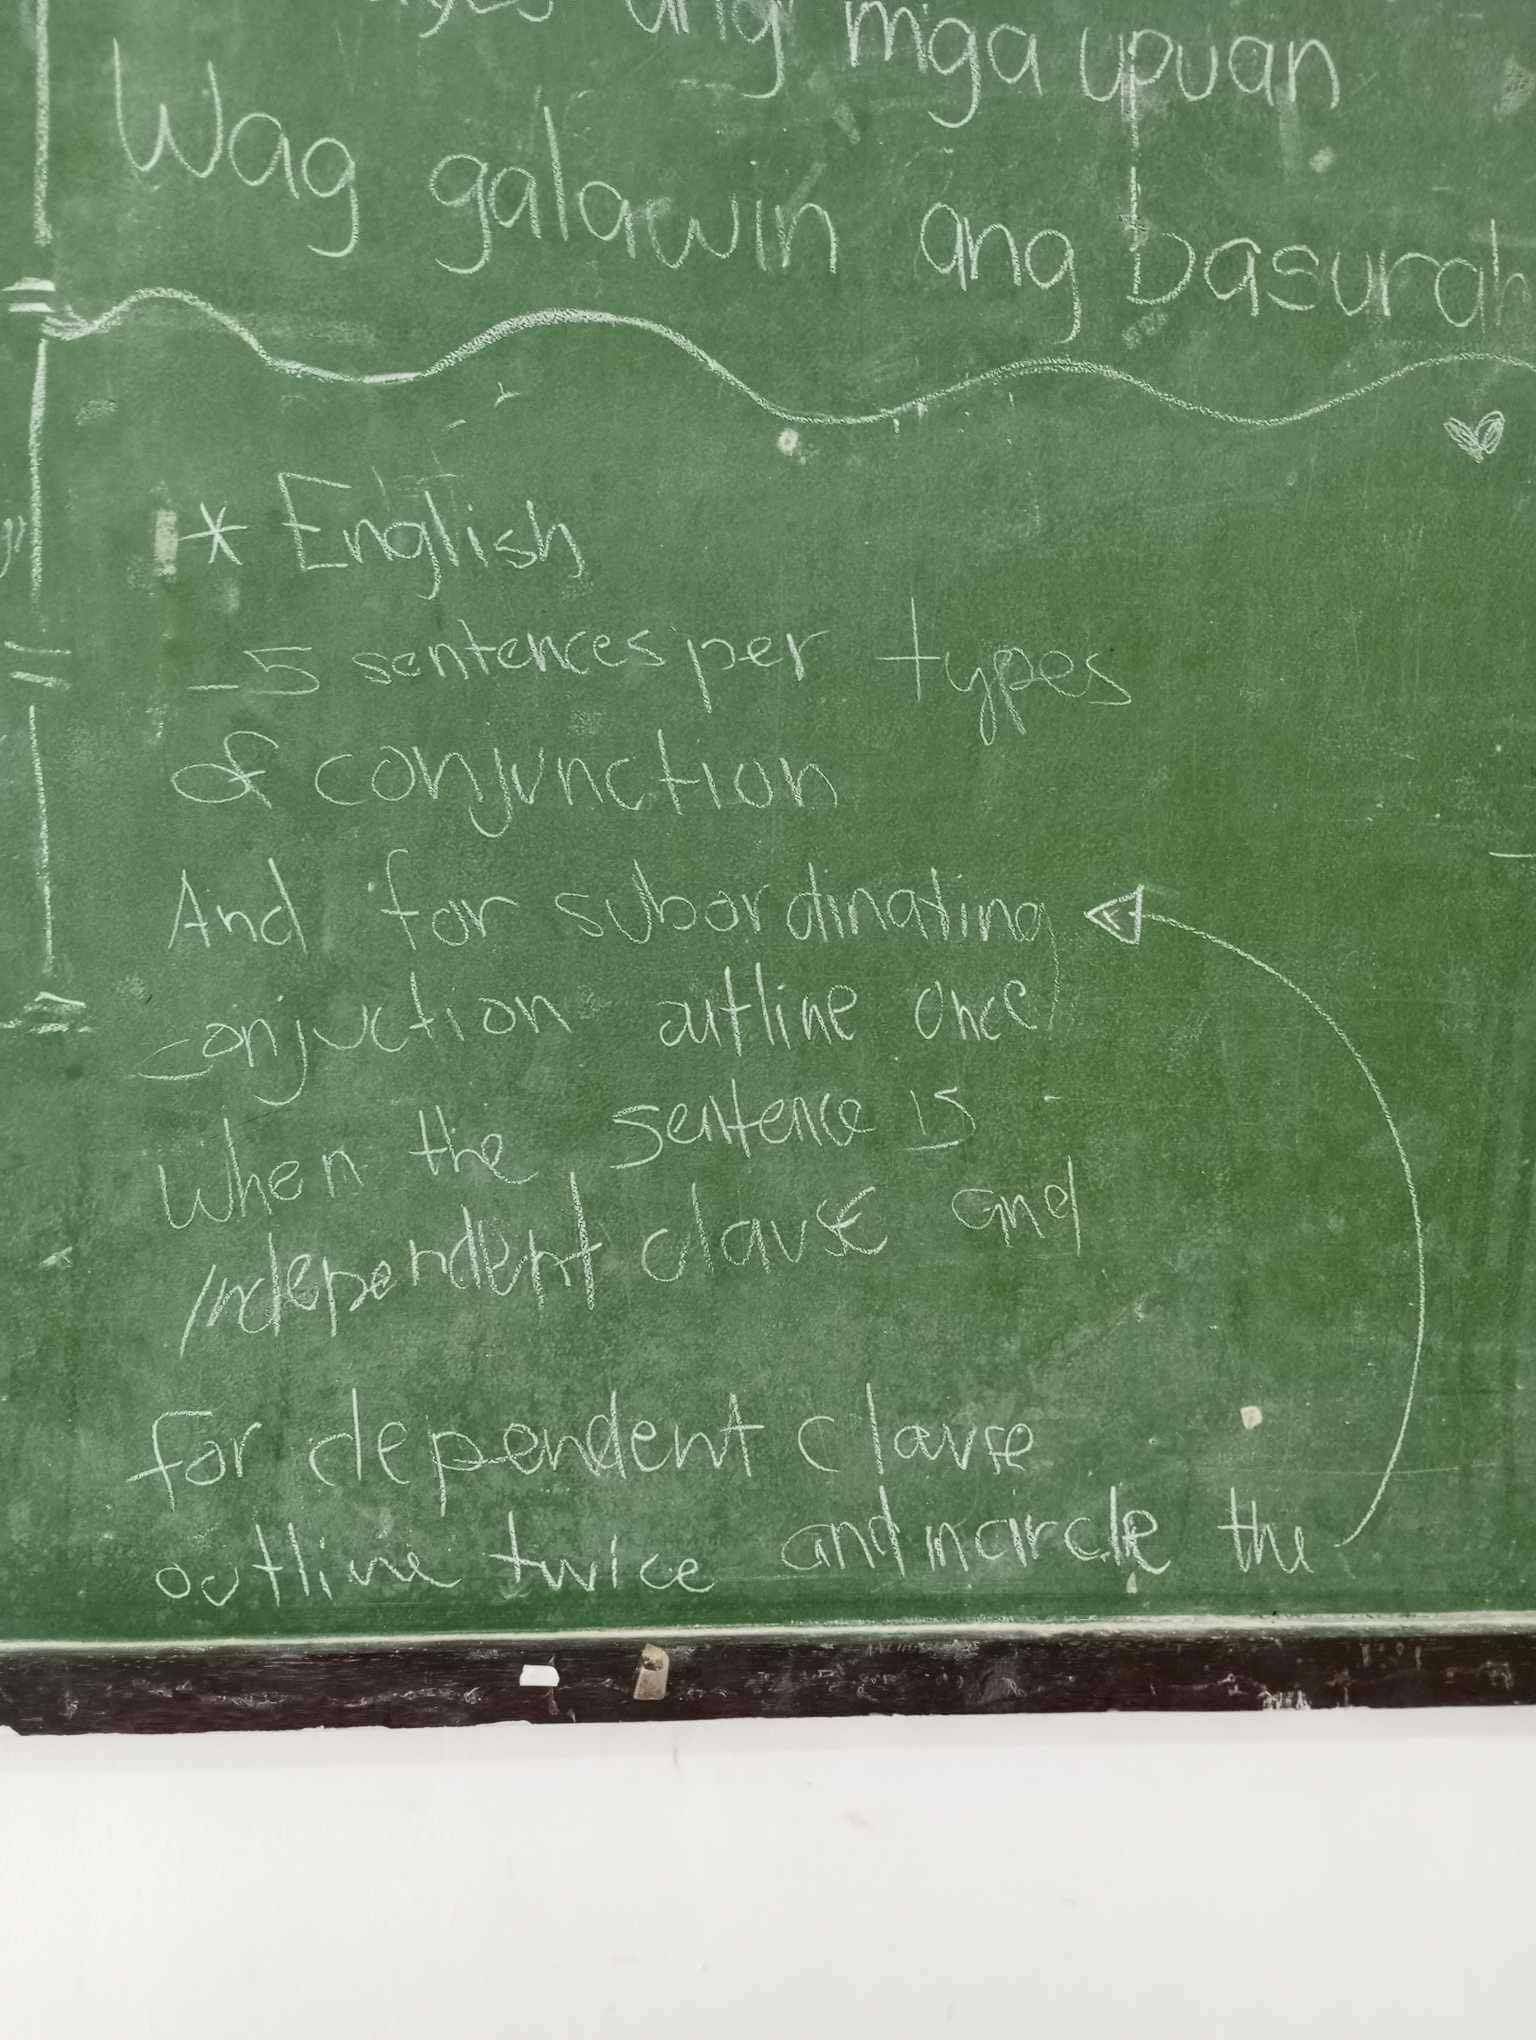 ang mga upuan
Wag galawin ang basurah
* English
- 5 sentences per types
of conjunction
And for subordinating
conjuction outline once
when the sentence is
independent clause and
for dependent clause
outline twice and the